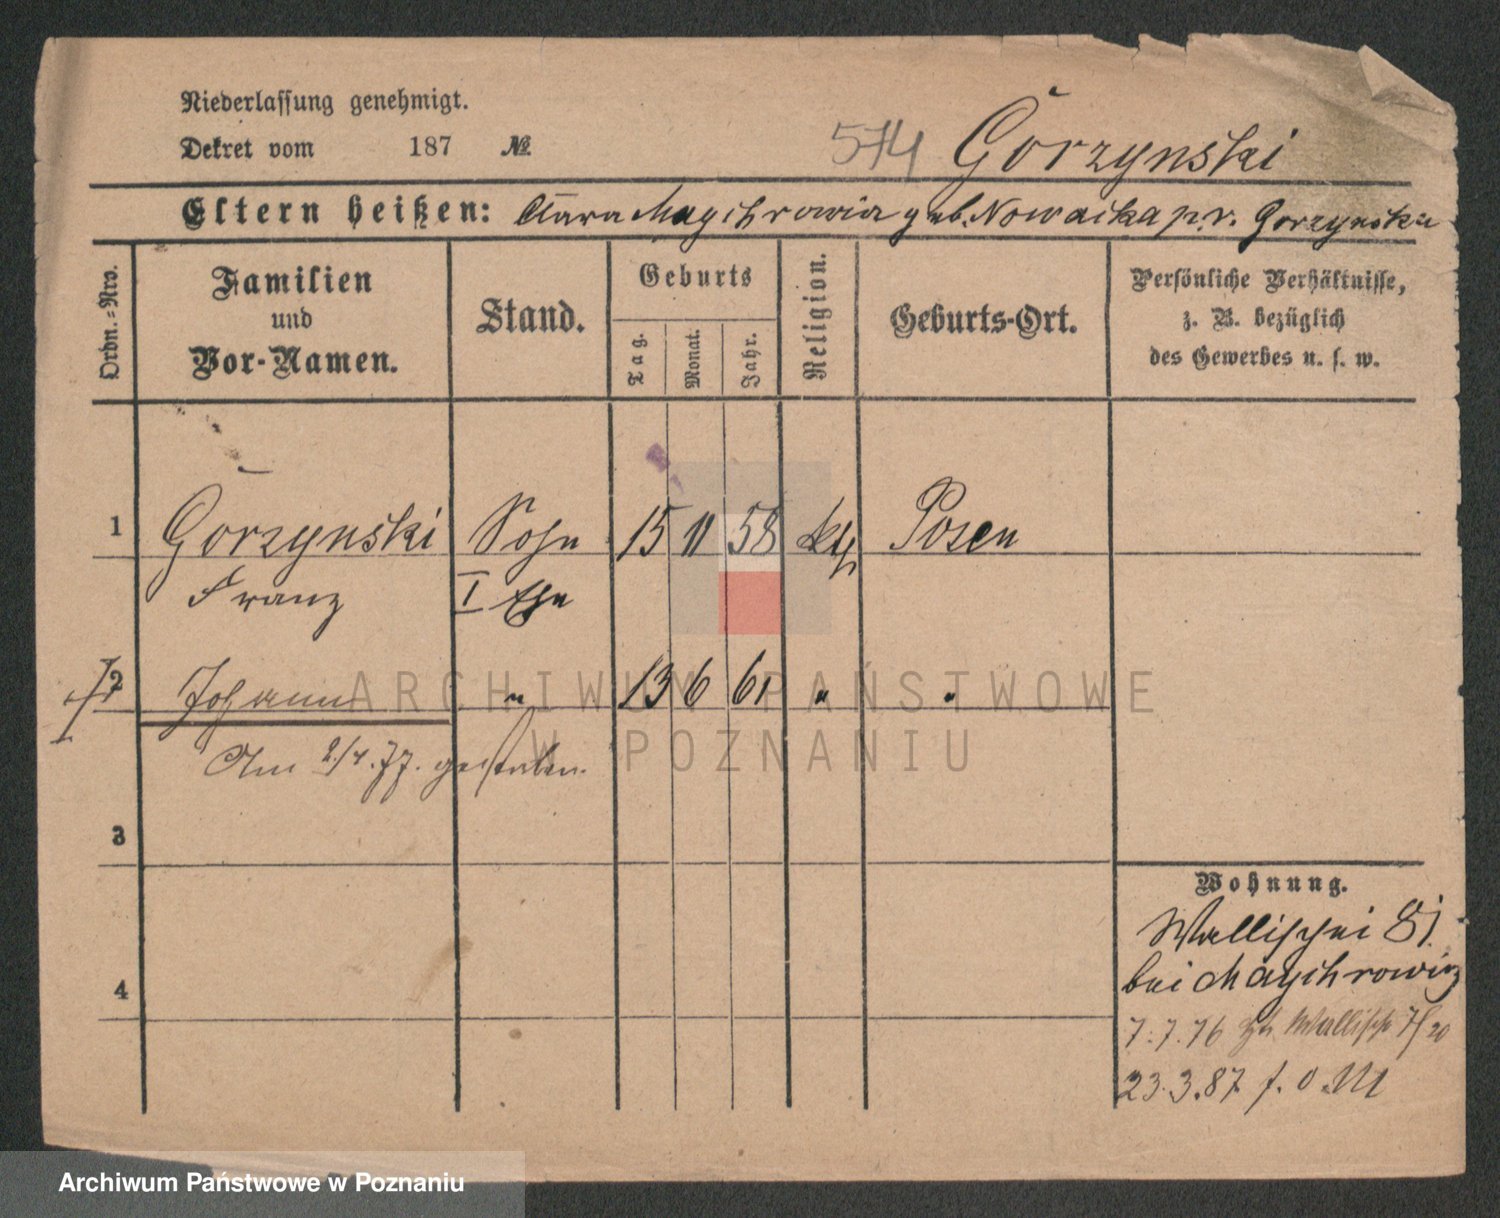 Niederlassung genehmigt.
Dekret vom 187 №
574 Górzynski
Eltern heißen: Clara Maychrowicz geb. Nowacka pr. v. Gorzynska
Ordn.-Nro.
Familien
und
Vor-Namen.
Stand.
Geburts
Tag.
Monat.
Jahr.
Religion.
Geburts-Ort.
Persönliche Verhältnisse,
z. B. bezüglich
des Gewerbes u. s. w.
1 Górzynski Sohn 15 11 58 kth Posen
Franz I Ehe
2 Johann " 13 6 61 " "
Am 2/4.77. gestorben.
3
4
Wohnung.
Wallischei 81.
bei Maychrowicz
7.7.76 Wallisch 7/20
23.3.87. f. o. M
ARCHIWUM PAŃSTWOWE
W POZNANIU
Archiwum Państwowe w Poznaniu